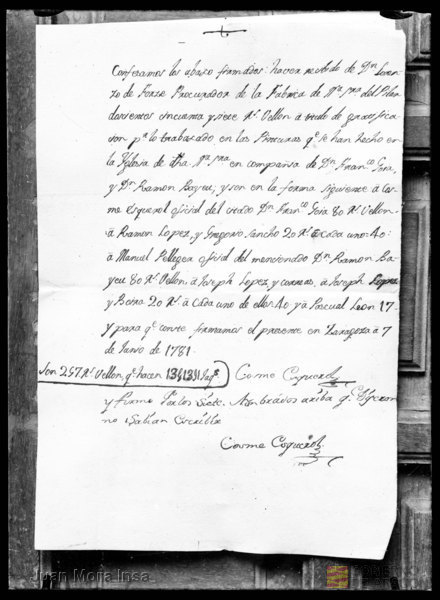 Confesamos los abaxo firmados: haver recibido de Dn. Loren-
zo de Porze Procurador de la Fabrica de Na. Sra. del Pilar
doscientos cincuenta y siete Rs. Vellon à titulo de gratifica
cion pr. lo trabaxado en las Pinturas qe. se han hecho en
la Yglesia de dha. Na. Sra. en compañia de Dn. Franco. Goia,
y Dn. Ramon Bayeu, y son en la forma siguiente à Cos-
me Esquerol oficial del citado Dn. Franco. Goia 80 Rs. Vellon-
à Ramon Lopez, y Gregorio Sancho 20 Rs. à cada uno: 40:
à Manuel Pellegea oficial del mencionado Dn. Ramon Ba-
yeu 80 Rs. Vellon: à Joseph Lopez, y à Joseph Lopez
y Beira 20 Rs. à Cada uno de ellos: 40: y à Pascual Leon 17-
y para qe. conste firmamos el presente en Zaragoza à 7
de Junio de 1781.
Son 257 Rs. Vellon, qe. hacen Jaqs.
Cosme Esquerol
y firmo Por los Siete Nombrados arriba qe. Dixeron
no Sabian Escribir
Cosme Esquerol
Juan Mora Insa